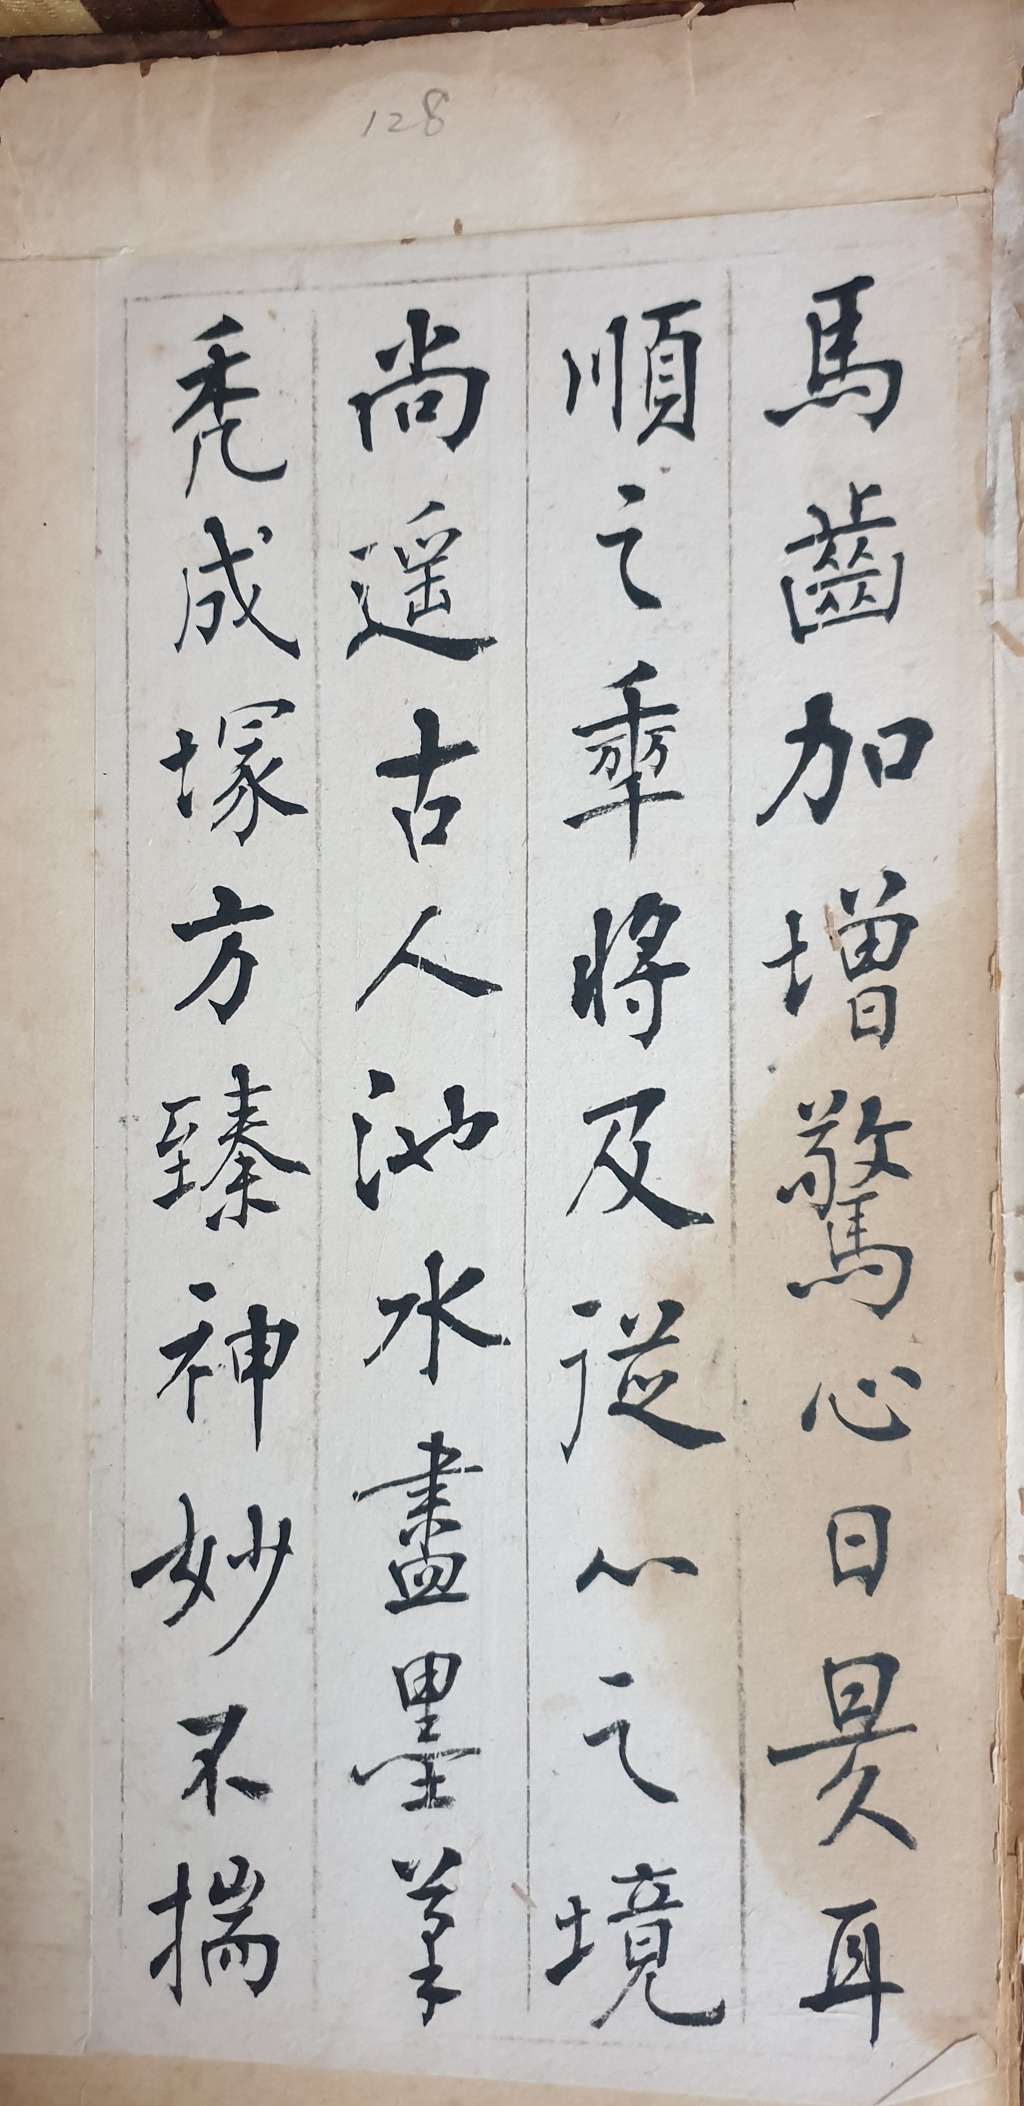 128
馬齒加增驚心日昃耳
順之年將及從心之境
尚遥古人池水盡墨筆
秃成塚方臻神妙不揣